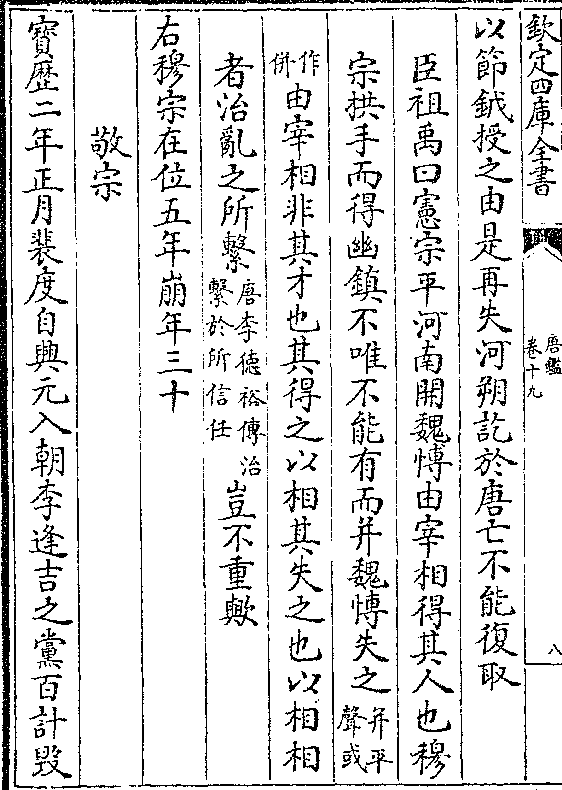 欽定四庫全書
唐鑑
卷十九
八
以節鉞授之由是再失河朔訖於唐亡不能復取
臣祖禹曰憲宗平河南開魏愽由宰相得其人也穆
宗拱手而得幽鎮不唯不能有而并魏愽失之并平聲或
作併由宰相非其才也其得之以相其失之也以相相
者治亂之所繫唐李徳裕傳治繫於所信任豈不重歟
右穆宗在位五年崩年三十
敬宗
寳歴二年正月裴度自興元入朝李逢吉之黨百計毁